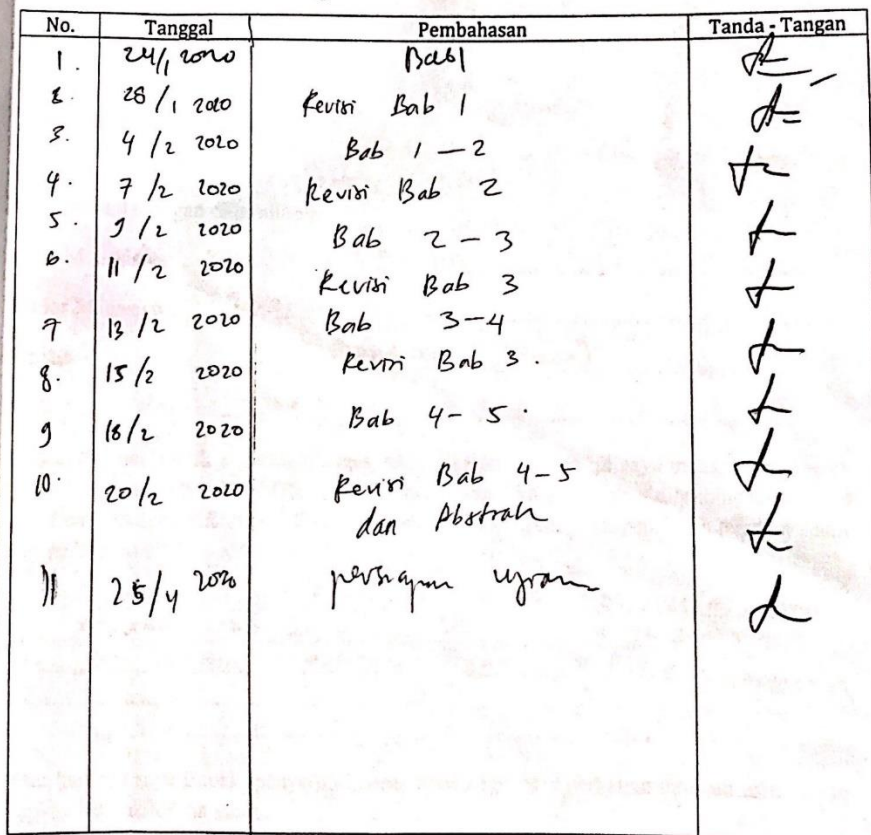 No. Tanggal Pembahasan Tanda - Tangan
1. 24/1 2020 Bab 1
2. 28/1 2020 Revisi Bab 1
3. 4/2 2020 Bab 1 – 2
4. 7/2 2020 Revisi Bab 2
5. 9/2 2020 Bab 2 – 3
6. 11/2 2020 Revisi Bab 3
7 13/2 2020 Bab 3-4
8. 15/2 2020 Revisi Bab 3.
9 18/2 2020 Bab 4- 5.
10. 20/2 2020 Revisi Bab 4-5
dan Abstrak
11 25/4 2020 persiapan ujian